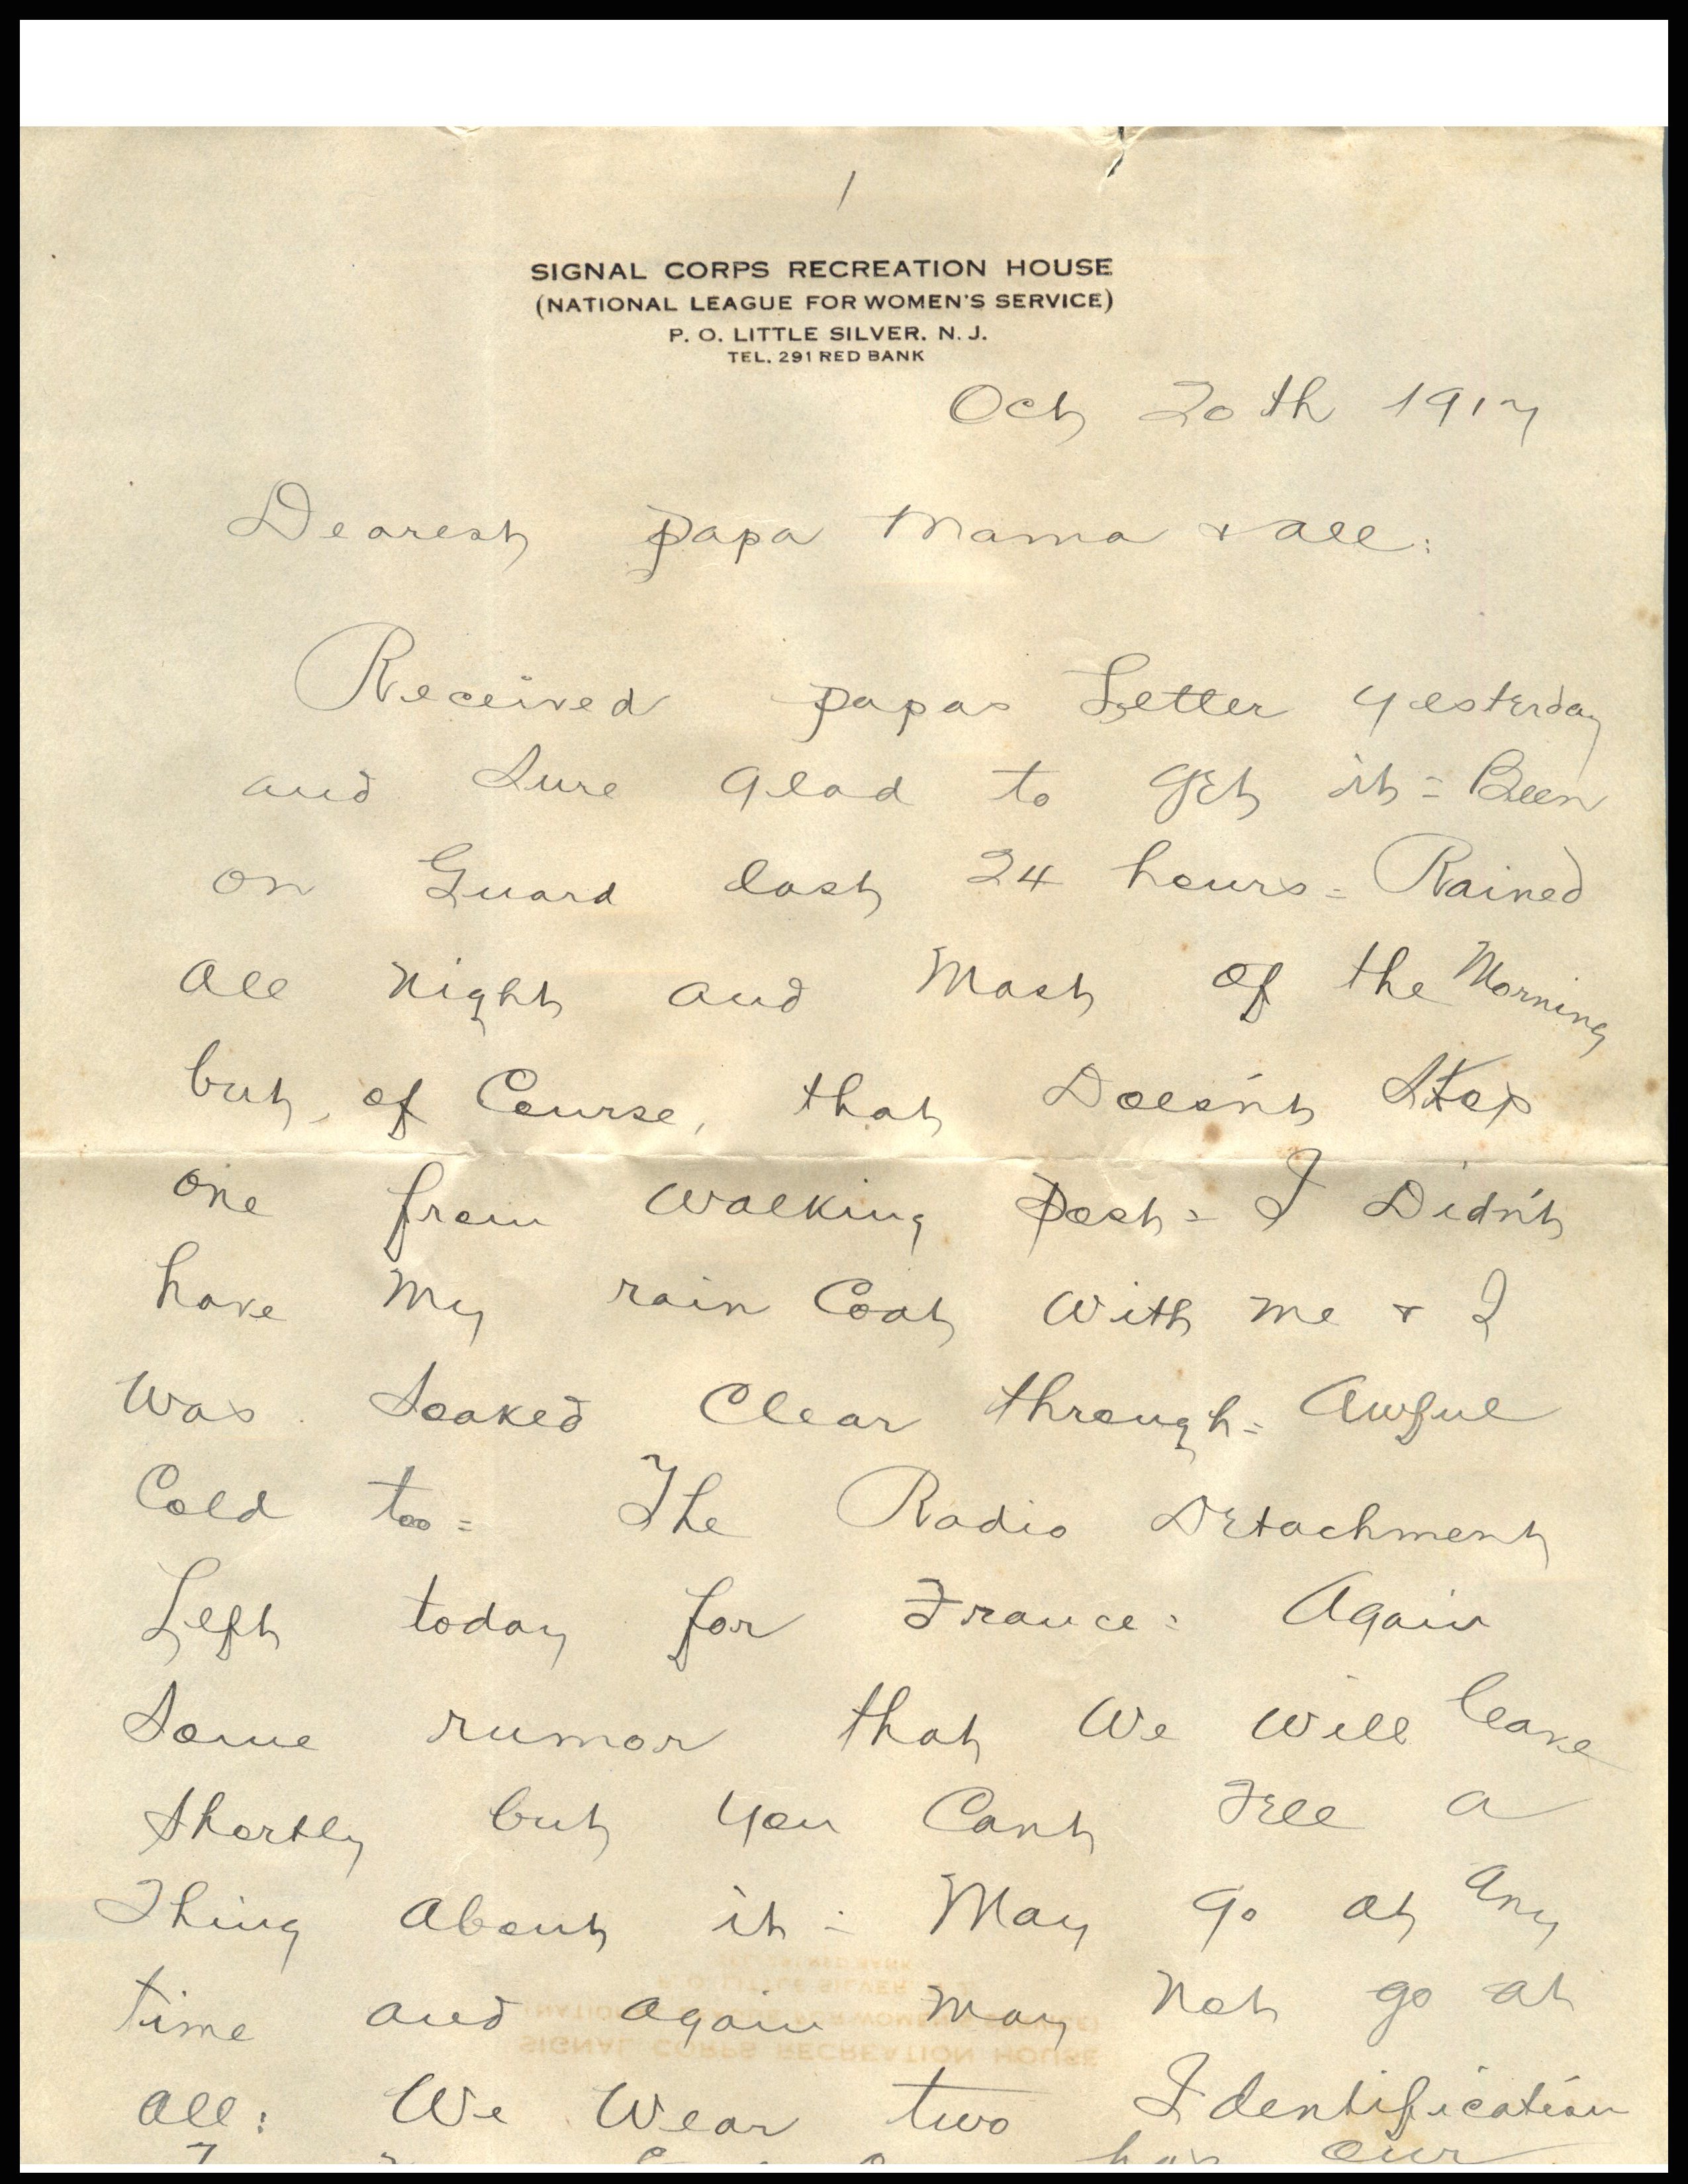 1
SIGNAL CORPS RECREATION HOUSE
(NATIONAL LEAGUE FOR WOMEN'S SERVICE)
P. O. LITTLE SILVER. N. J.
TEL. 291 RED BANK
Oct 20th 1917
Dearest papa Mama & all:
Received papas Letter yesterday
and Sure glad to get it = Been
on Guard last 24 hours = Rained
all night and Most of the Morning
but, of Course, that Doesn't Stop
one from walking post = I Didn't
have My rain Coat With me & I
was Soaked Clear through = Awful
Cold too = The Radio Detachment
Left today for France = Again
Some rumor that We Will leave
Shortly but you Cant Tell a
Thing About it = May go at any
time and again May not go at
all: We Wear two Identification
has our
SIGNAL CORPS RECREATION HOUSE
(NATIONAL LEAGUE FOR WOMEN'S SERVICE)
P. O. LITTLE SILVER. N. J.
TEL. 291 RED BANK